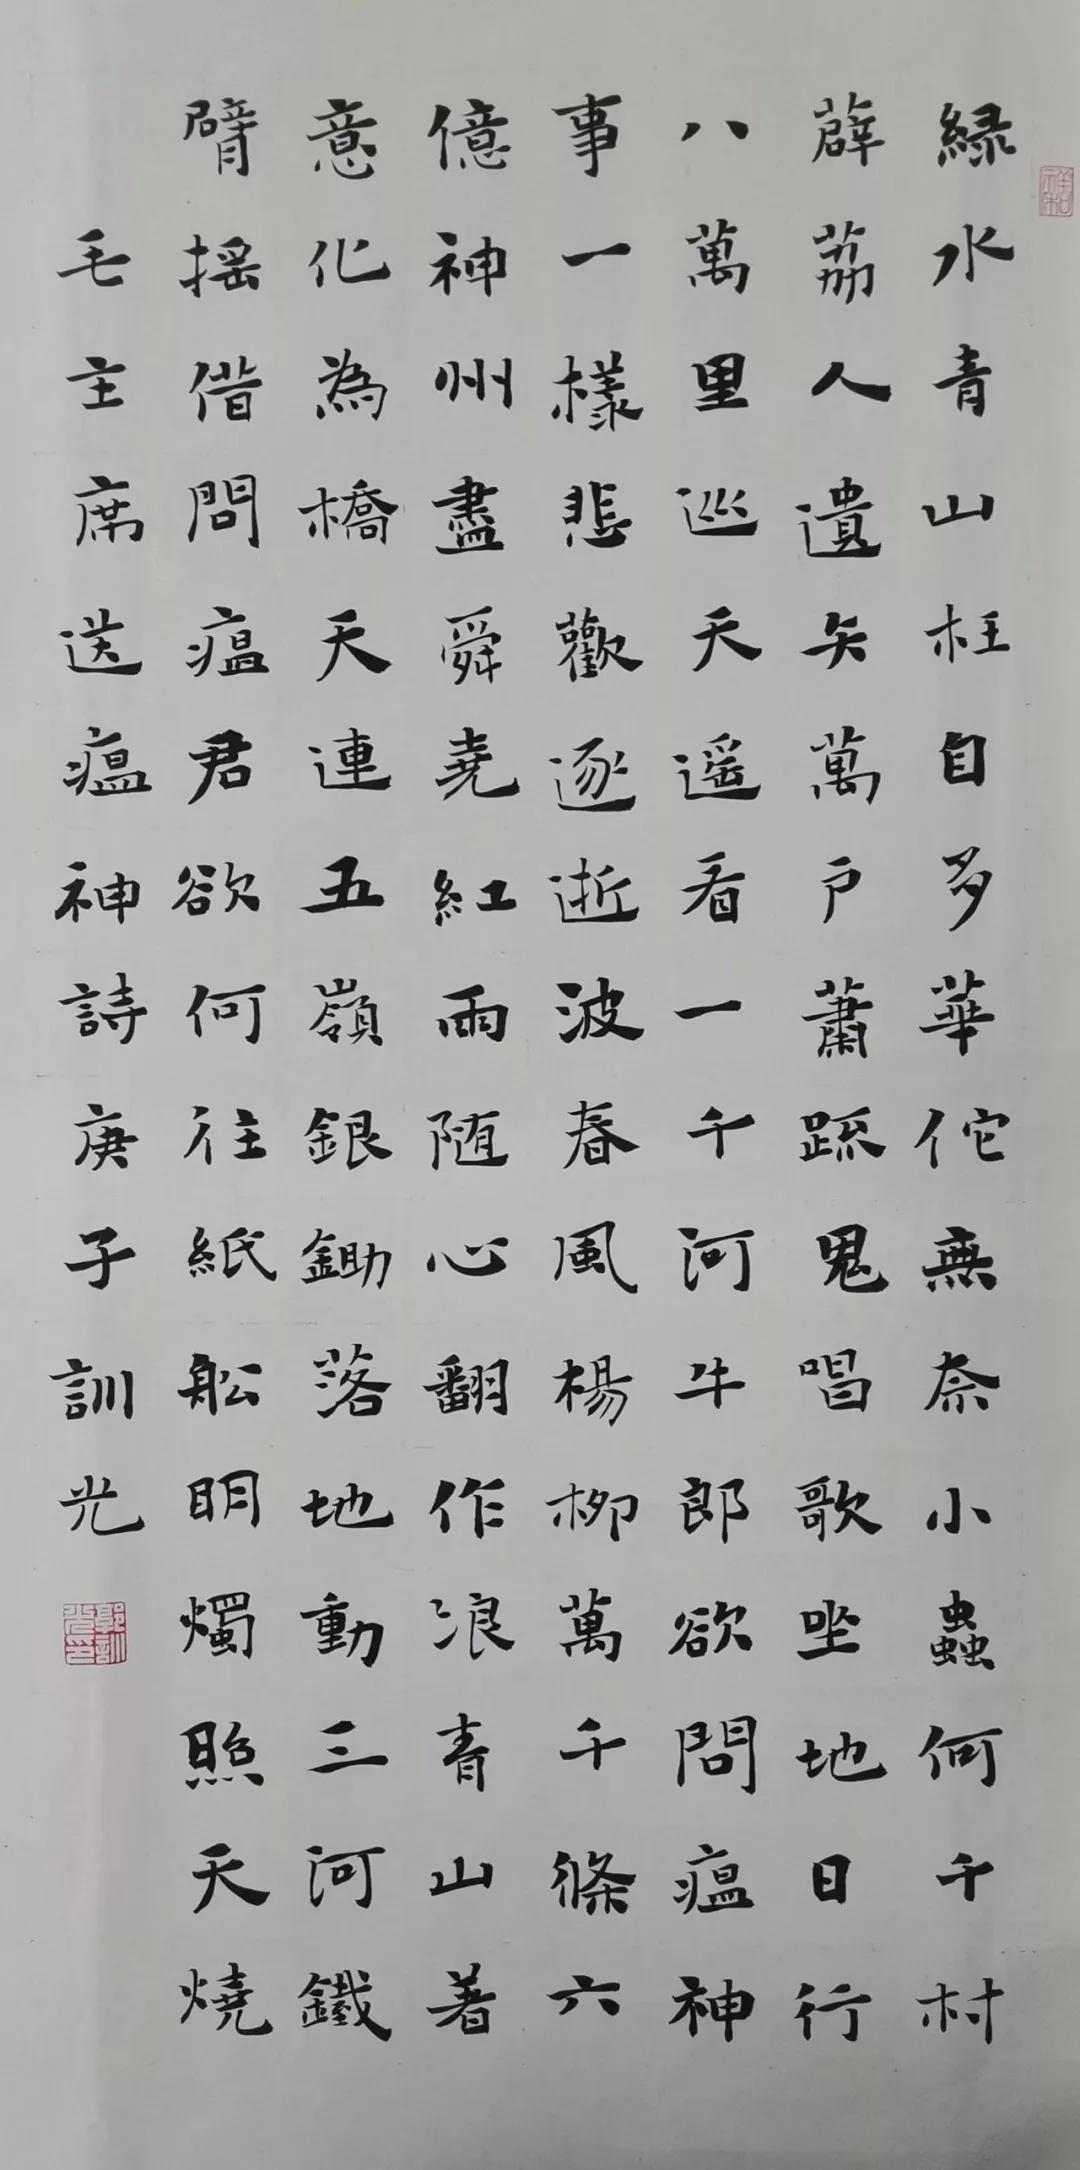 綠水青山枉自多華佗無奈小蟲何千村
薜荔人遺矢萬戶蕭疏鬼唱歌坐地日行
八萬里巡天遥看一千河牛郎欲問瘟神
事一樣悲歡逐逝波春風楊柳萬千條六
億神州盡舜堯紅雨随心翻作浪青山著
意化為橋天連五嶺銀鋤落地動三河鐵
臂摇借問瘟君欲何往紙船明燭照天燒
毛主席送瘟神詩庚子訓光
祥和
郭訓光印